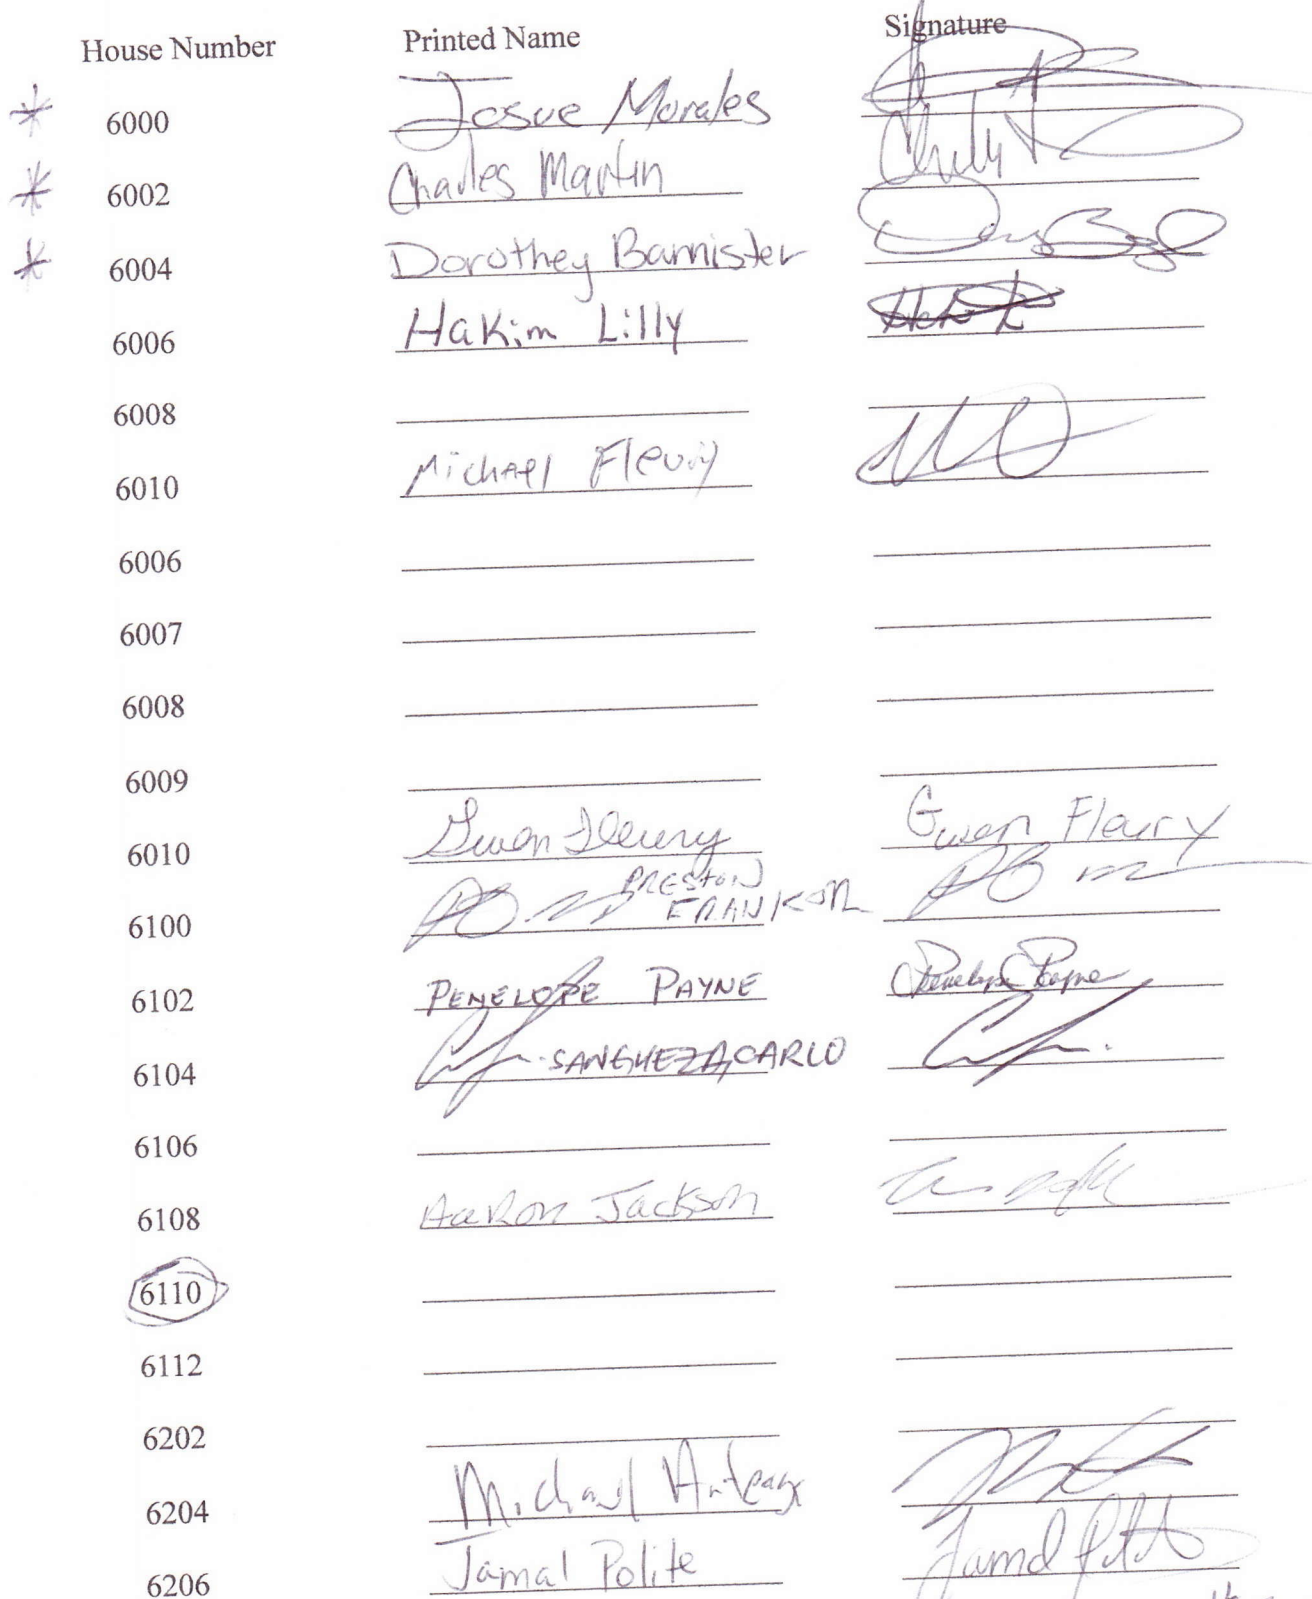 House Number Printed Name Signature
* 6000 Josue Morales
* 6002 Charles Martin
* 6004 Dorothey Bannister
6006 Hakim Lilly
6008
6010 Michael Fleury
6006
6007
6008
6009
6010 Gwen Fleury Gwen Fleury
6100 PRESTON
6102 PENELOPE PAYNE Penelope Payne
6104 CARLO
6106
6108 Aaron Jackson
6110
6112
6202
6204 Michael
6206 Jamal Polite Jamal Polite